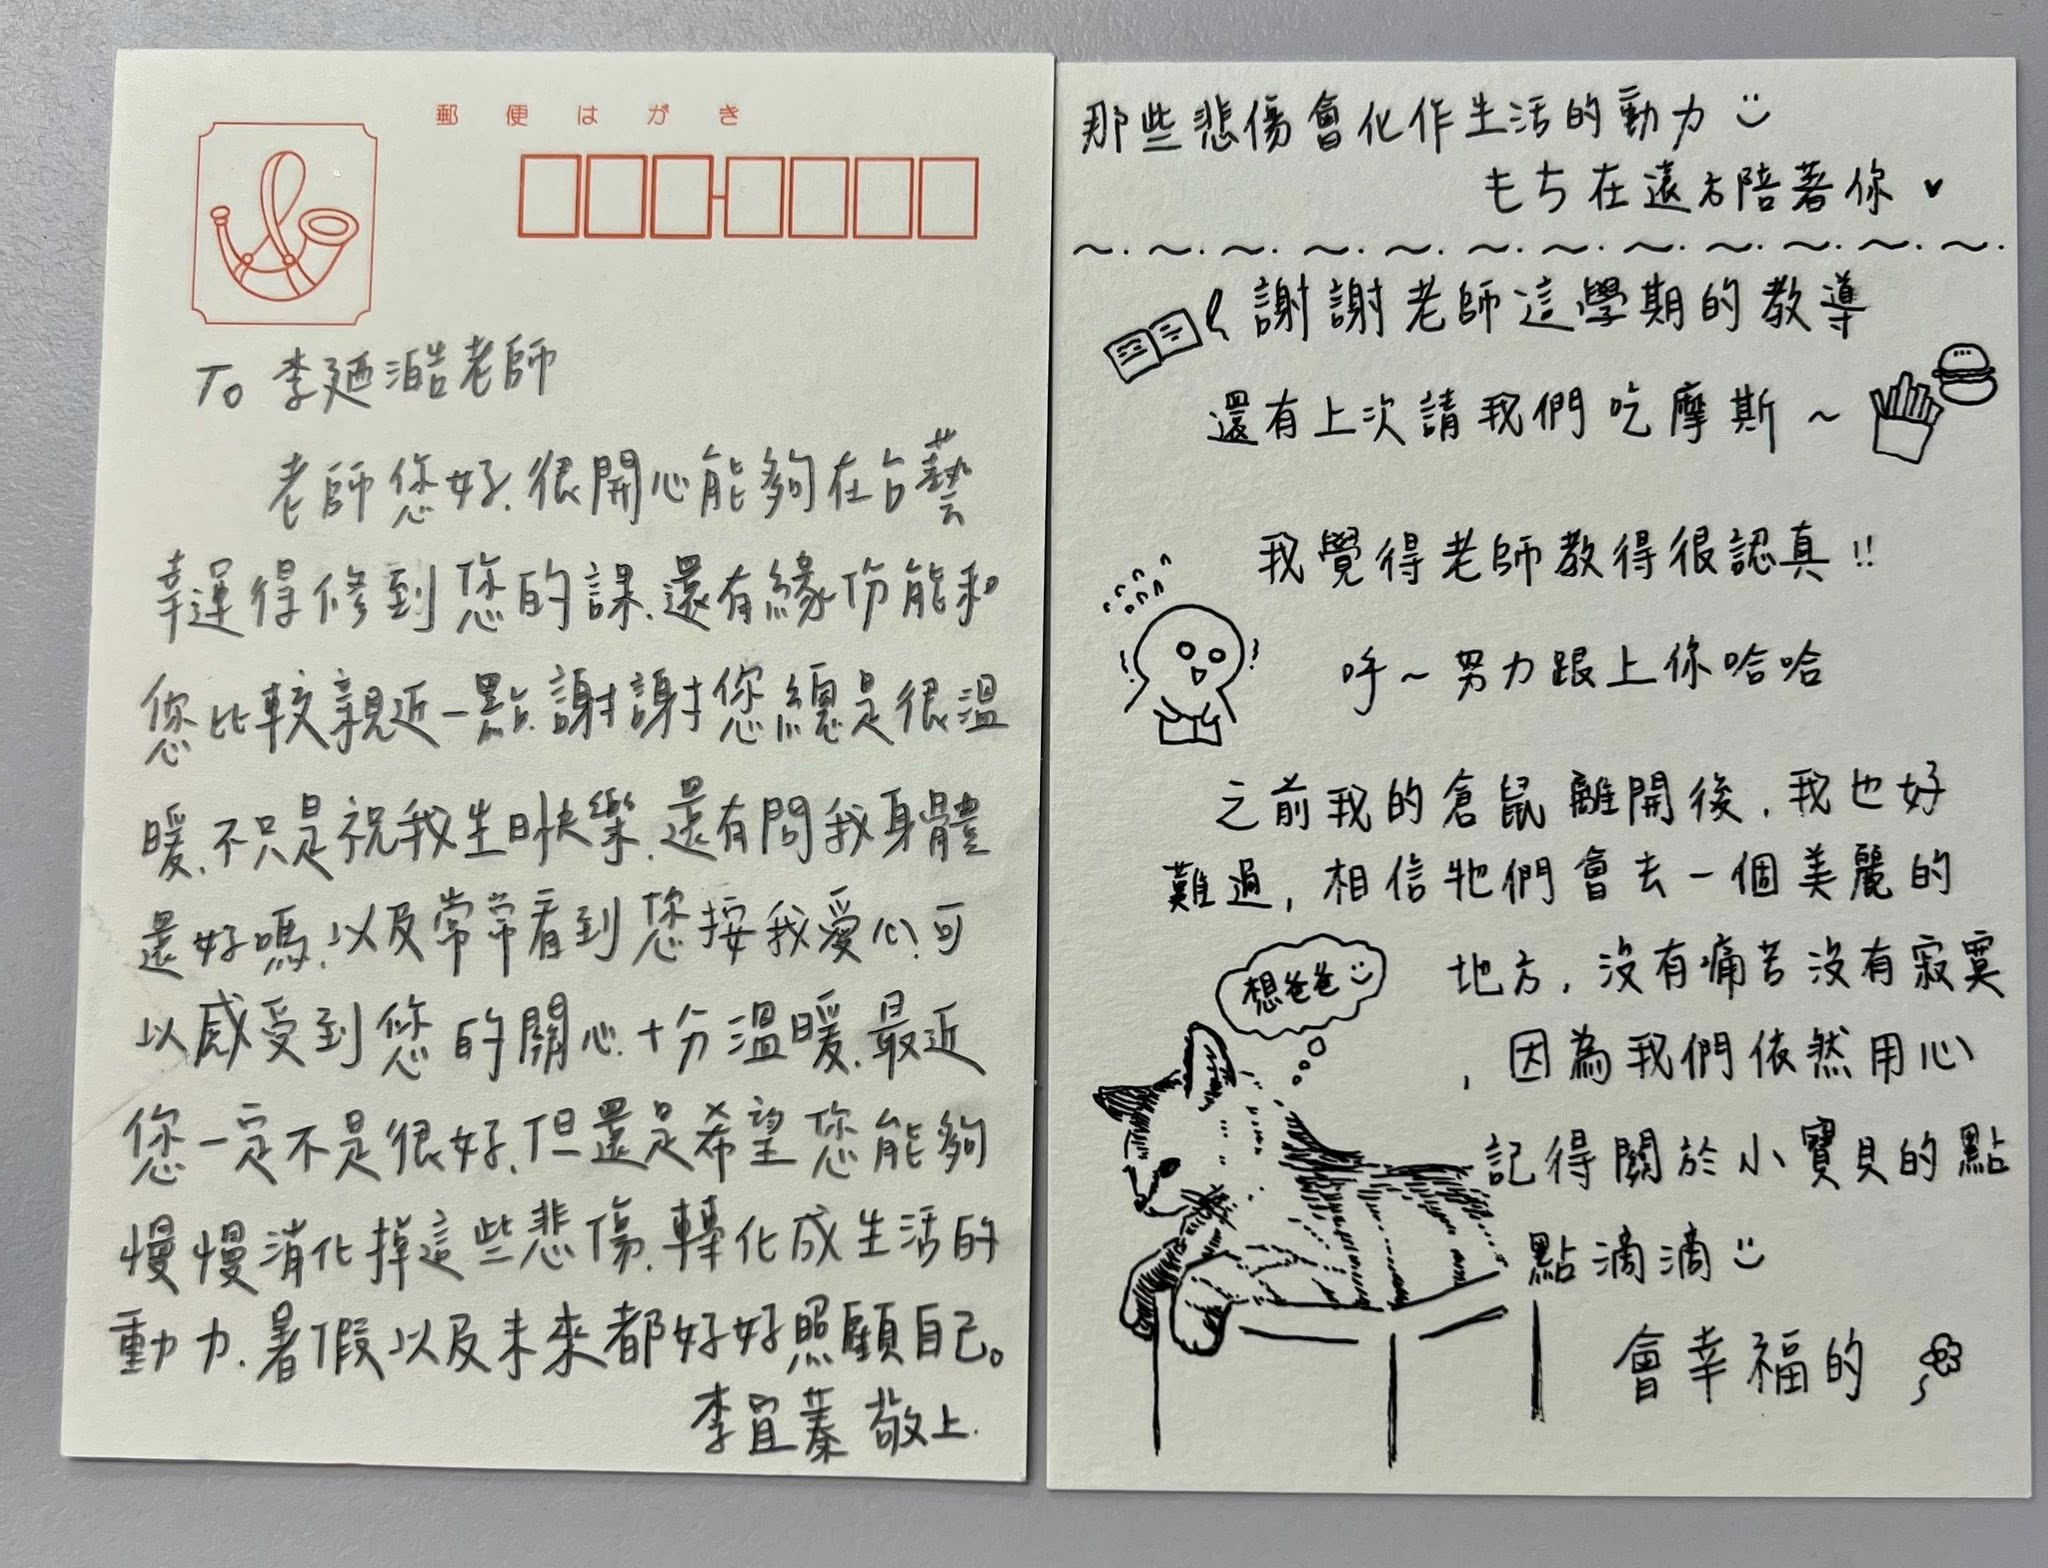 郵便はがき
To 李廼澔老師
老師您好.很開心能夠在台藝
幸運得修到您的課.還有緣份能和
您比較親近一點.謝謝您總是很溫
暖.不只是祝我生日快樂.還有問我身體
還好嗎.以及常常看到您按我愛心.可
以感受到您的關心.十分溫暖.最近
您一定不是很好.但還是希望您能夠
慢慢消化掉這些悲傷.轉化成生活的
動力.暑假以及未來都好好照顧自己。
李宜蓁 敬上.
那些悲傷會化作生活的動力
もち在遠方陪著你
謝謝老師這學期的教導
還有上次請我們吃摩斯~
我覺得老師教得很認真!!
呼~努力跟上你哈哈
之前我的倉鼠離開後,我也好
難過,相信牠們會去一個美麗的
地方,沒有痛苦沒有寂寞
想爸爸
,因為我們依然用心
記得關於小寶貝的點
點滴滴
會幸福的